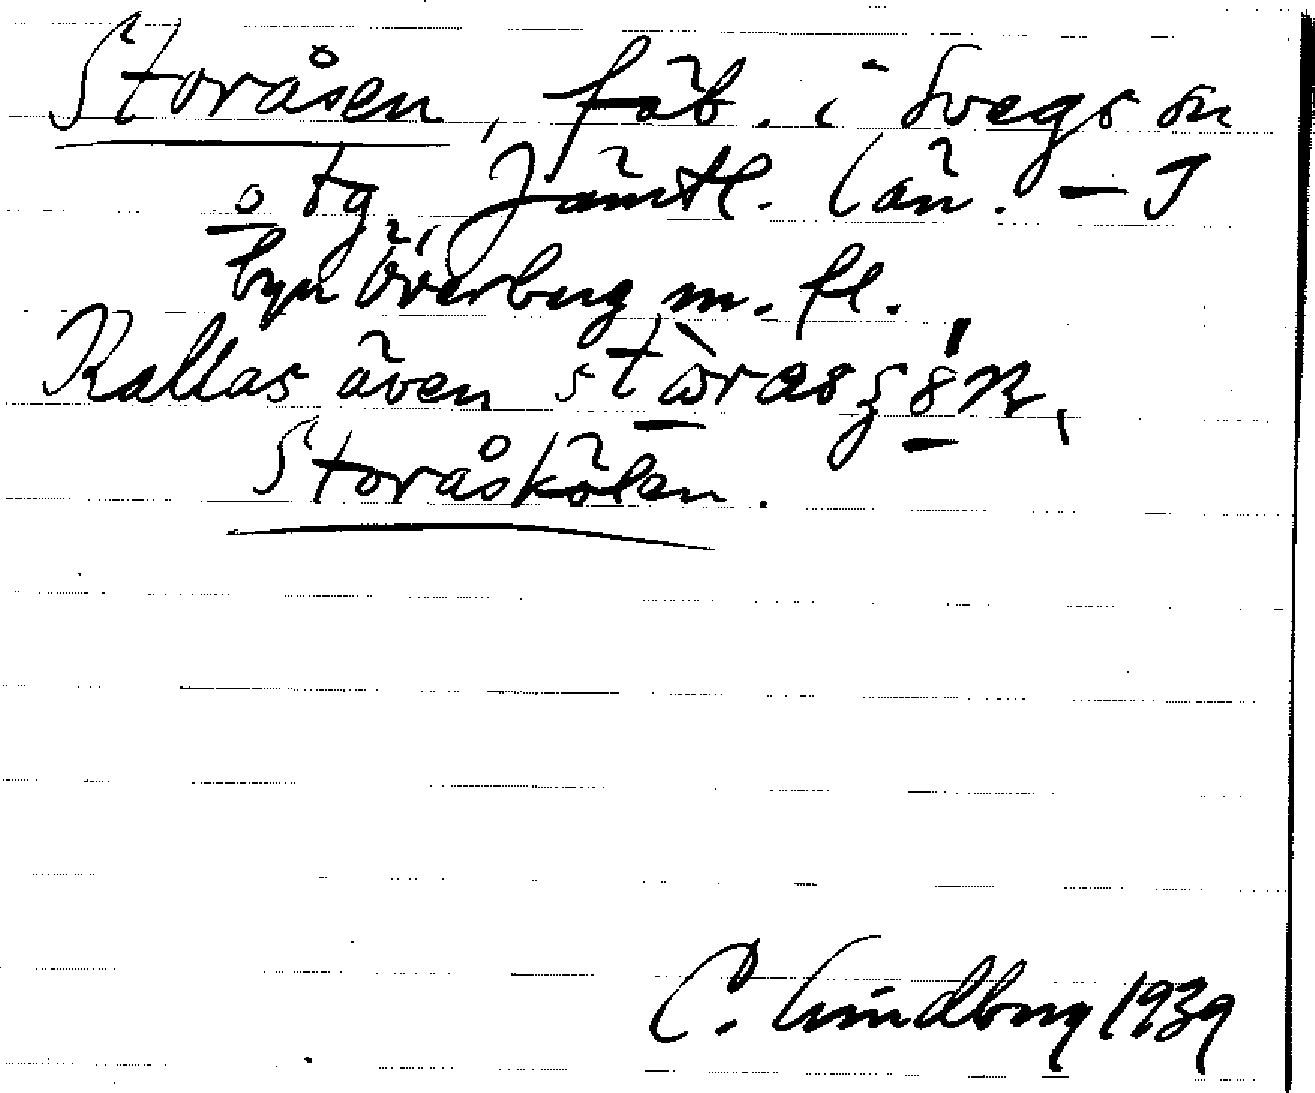 Storåsen, fäb. i Svegs sn
o tg, Jämtl. län. – I
byn Överberg m. fl.
Kallas även
Storåskölen.
C. Lindberg 1939